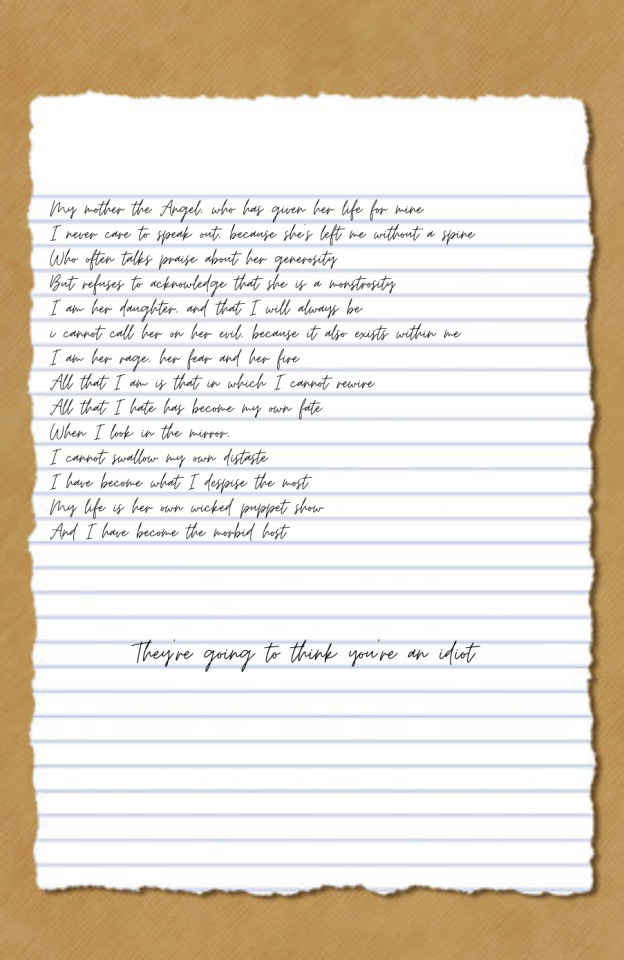 My mother the Angel, who has given her life for mine
I never care to speak out, because she's left me without a spine
Who often talks praise about her generosity
But refuses to acknowledge that she is a monstrosity
I am her daughter, and that I will always be
i cannot call her on her evil, because it also exists within me
I am her rage, her fear and her fire
All that I am is that in which I cannot rewire
All that I hate has become my own fate
When I look in the mirror,
I cannot swallow my own distaste
I have become what I despise the most
My life is her own wicked puppet show
And I have become the morbid host
They're going to think you're an idiot